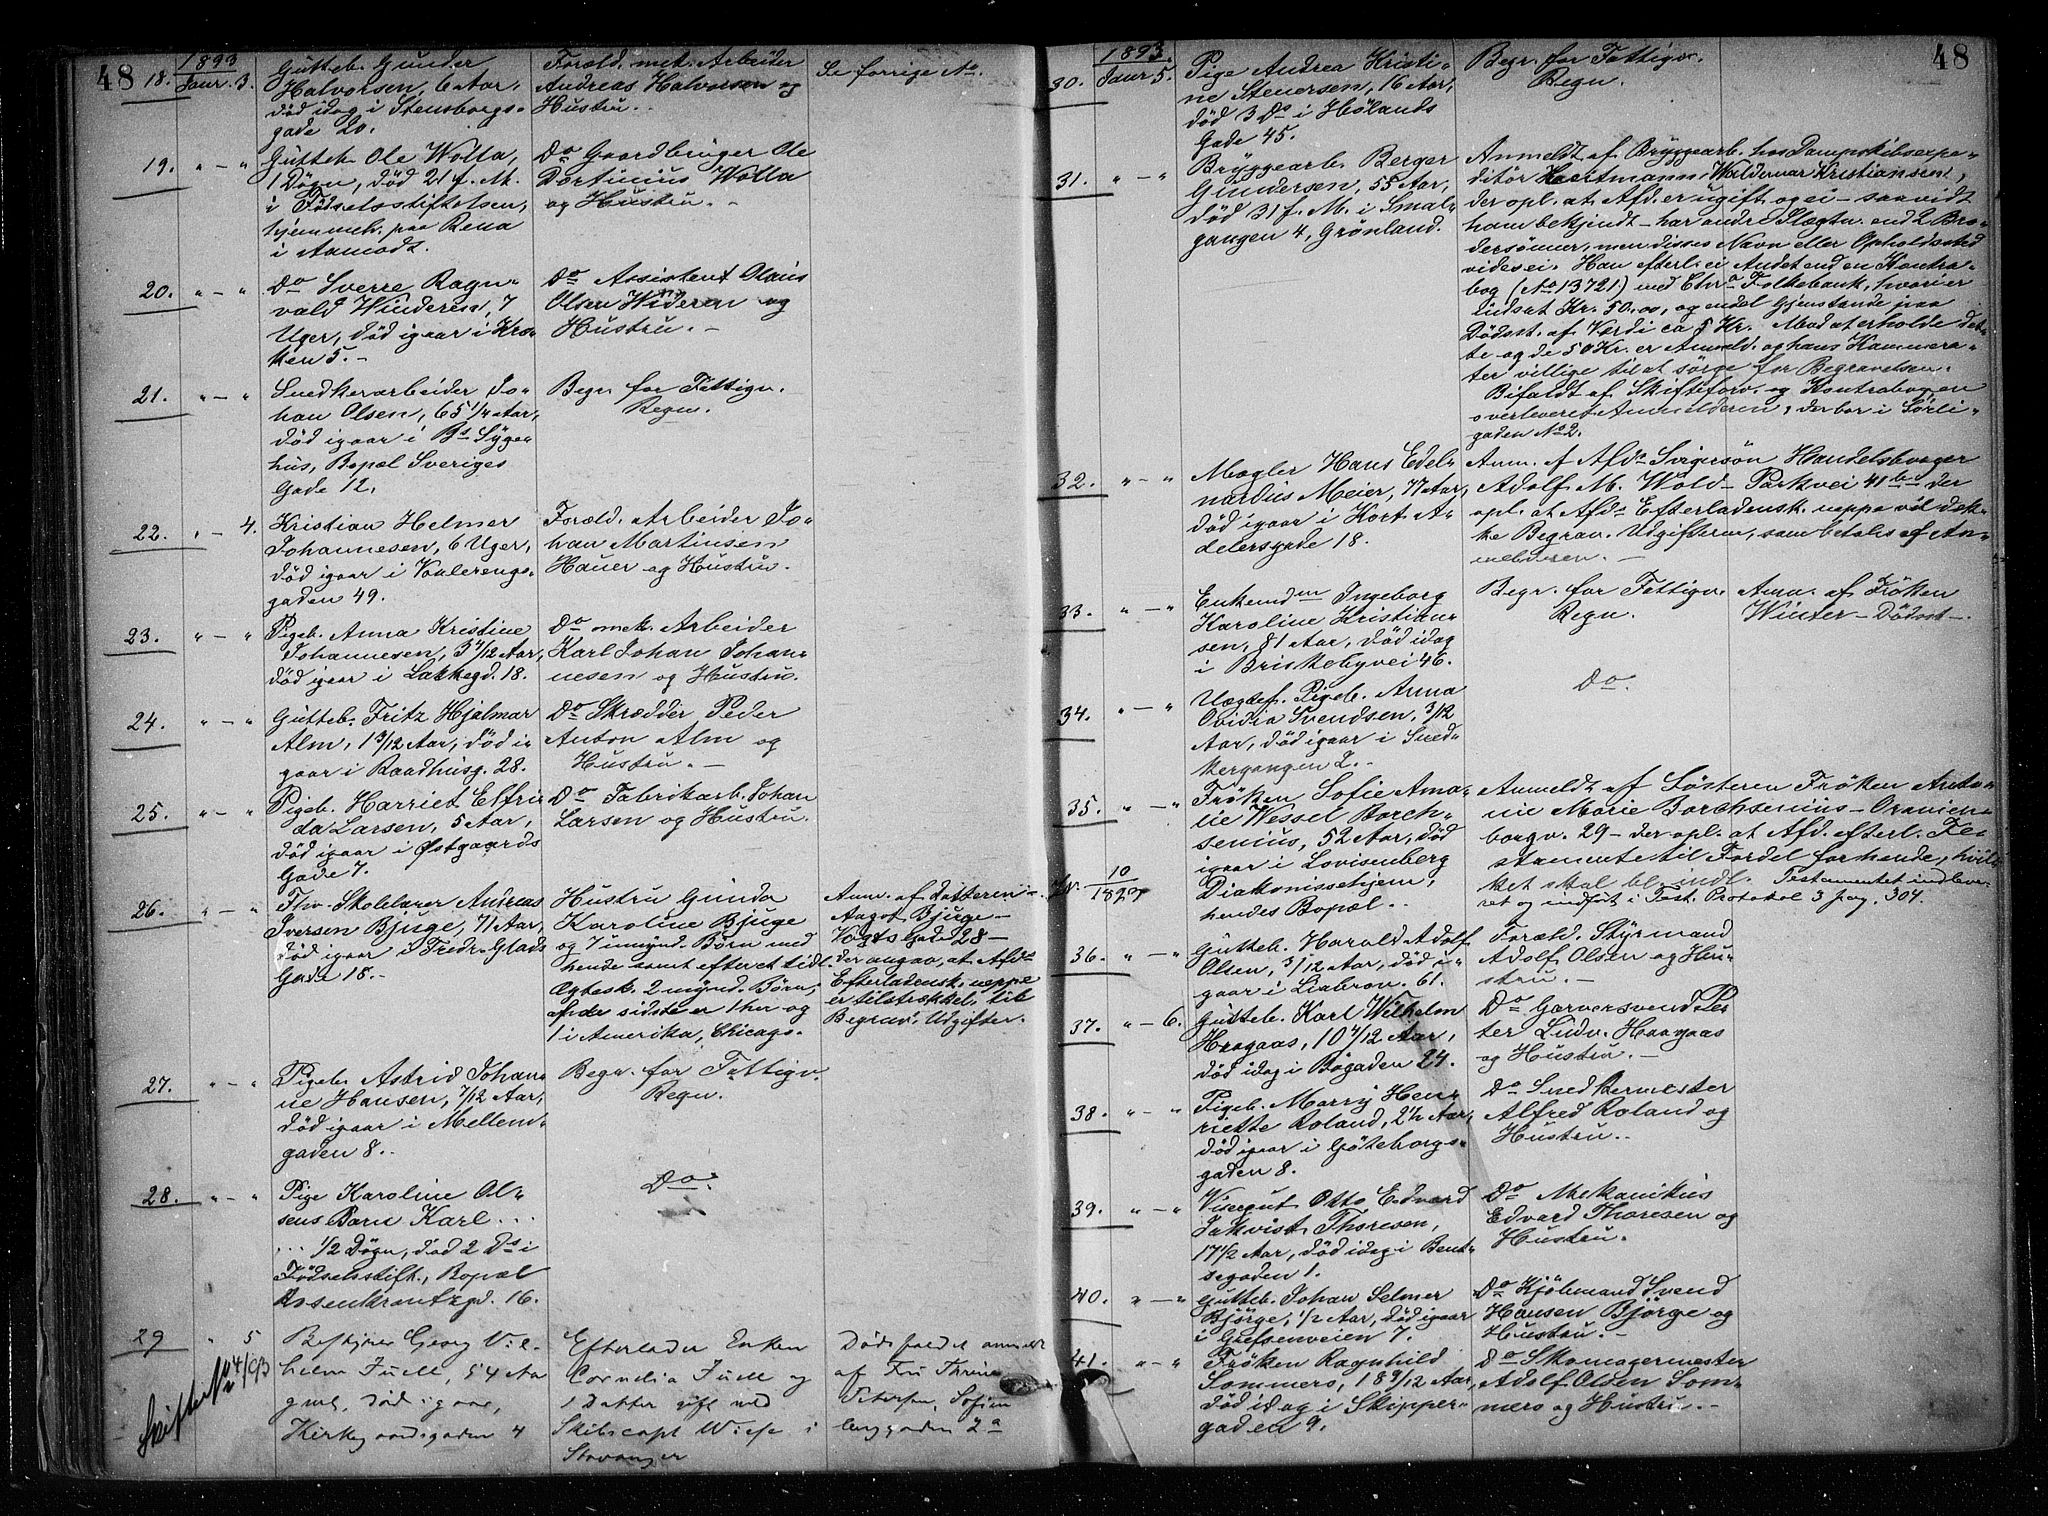 48
18. 1893 Janr. 3. Gutteb. Gunder
Halvorsen, 6 Aar,
död idag i Stensborgs-
gade 20.
Foræld. mek. Arbeider
Andreas Halvorsen og
Hustru.
Se forrige No.
19. " - " Gutteb. Ole Wolla,
1 Døgn, död 21 f. M.
i Födselsstiftelsen,
hjemmeh. paa Rena
i Aamodt.
Do Gaardbruger Ole
Dortinius Wolla
og Hustru. -
20. " - " Do Sverre Ragn-
vald Winderen, 7
Uger, död igaar i Kro-
ken 5. -
Do Assistent Olaus
Olsen Winderen og
Hustru. -
21. " - " Snedkerarbeider Jo-
han Olsen, 65 1/4 Aar,
död igaar i Bs Syge-
hus, Bopæl Sveriges
Gade 12.
Begr. for Fattigv.
Regn.
22. " - 4. Kristian Helmer
Johannesen, 6 Uger,
död igaar i Vaalerengs-
gaden 49.
Foræld. Arbeider Jo-
han Martinsen
Hauer og Hustru.
23. " - " Pigeb. Anna Kristine
Johannesen, 3 4/12 Aar,
död igaar i Lakkegd. 18.
Do mek. Arbeider
Karl Johan Johan-
nesen og Hustru.
24. " - " Gutteb. Fritz Hjalmar
Alm, 1 3/12 Aar, död i-
gaar i Raadhusg. 28.
Do Skrædder Peder
Anton Alm og
Hustru. -
25. " - " Pigeb. Harriet Elfri-
da Larsen, 5 Aar,
död igaar i Østgaards
Gade 7.
Do Fabrikarb. Johan
Larsen og Hustru.
26. " - " Fhv. Skolelærer Andreas
Iversen Bjuge, 71 Aar,
död igaar i Fredr. Glads
Gade 18. -
Hustru Gunda
Karoline Bjuge
og 7 umynd. Børn med
hende samt efter et tidl.
Ægtesk. 2 mynd. Børn,
af de sidste er 1 her og
1 i Amerika, Chicago.
Anm. af Datteren
Aagot Bjuge -
Vogts Gade 28 -
der angav, at Afdes
Efterladensk. neppe
er tilstrækkel. til
Begrav. Udgifter.
27. " - " Pigeb. Astrid Johan-
ne Hansen, 7/12 Aar,
död igaar i Mellem-
gaden 8.
Begr. for Fattigv.
Regn.
28. " - " Pige Karoline Ol-
sens Barn Karl ...
... 1/2 Døgn, död 2 Ds i
Födselsstift., Bopæl
Rosenkrantzgd. 16.
Do.
29 " 5 Bestyrer Georg Vil-
helm Juell, 54 Aar
gml, död igaar,
Kirkegaardsgaden 4
Efterlader Enken
Cornelia Juell og
1 Datter gift med
Skibscapt Wiese i
Stavanger
Dødsfaldet anmeldt
af Fru Thrine
Petersen, Sofien
berggaden 2a
48
30. 1893. Janr 5. Pige Andrea Kristi-
ne Stenersen, 16 Aar,
död 3 Ds i Hølands
Gade 45.
Begr. for Fattigv.
Regn.
31. " - " Bryggearb. Berger
Gundersen, 55 Aar,
död 31 f. M. i Smal-
gangen 4, Grönland.
Anmeldt af Bryggearb. hos Dampskibsexpe-
ditör Hartmann, Waldemar Kristiansen,
der opl. at Afd. er ugift og ei - saavidt
ham bekjendt - har andre Slægtn. end 2 Bro-
dersønner, men disses Navn eller Opholdssted
vides ei. Han efterl. ei Andet end en Kontra-
bog (No 13721) med Chra Folkebank, hvori er
indsat Kr. 50.00, og endel Gjenstande paa
Dödsst. af Værdi ca 5 Kr. Mod at erholde det-
te og de 50 Kr. er Anmeld. og hans Kammera-
ter villige til at sørge for Begravelsen.
Bifaldt af Skifteforv. og Kontrabogen
overleveret Anmelderen, der bor i Sørli-
gaden No 2.
32. " - " Mægler Hans Edel-
nardus Meier, 77 Aar,
död igaar i Kort A-
delersgade 18.
Anm. af Afds Svigersön Handelsborger
Adolf M. Wold - Parkvei 41 bed der
opl. at Afds Efterladensk. neppe vil dæk-
ke Begrav. Udgifterne, som betales af An-
melderen. -
33. " - " Enkemdm Ingeborg
Karoline Kristian-
sen, 81 Aar, död idag
i Briskebyvei 46.
Begr. for Fattigv.
Regn.
Anm. af Fröken
Winter - Dödsst. -
34. " - " Uægtef. Pigeb. Anna
Ovidia Svendsen, 3/12
Aar, död igaar i Sned-
kergangen 2. -
Do.
35. " - " Fröken Sofie Ama-
lie Wessel Borch-
senius, 52 Aar, död
igaar i Lovisenberg
Diakonissehjem,
hendes Bopæl.
10
1893
Anmeldt af Søsteren Fröken Anto-
nie Marie Borchsenius - Oranien-
borgv. 29 - der opl. at Afd. efterl. Te-
stamente til Fordel for hende, hvil-
ket skal bli indl. Testamentet indleve-
ret og indført i Test. Protokol 3 pag. 304.
36. " - " Gutteb. Harald Adolf
Olsen, 3/12 Aar, död i-
gaar i Liabron. 61.
Foræld. Styrmand
Adolf Olsen og Hu-
stru. -
37. " - 6. Gutteb. Karl Wilhelm
Haagaas, 10 4/12 Aar,
död idag i Bögaden 24.
Do Garversvend Pe-
ter Ludv. Haagaas
og Hustru. -
38. " - " Pigeb. Marry Hen-
riette Roland, 2 1/2 Aar,
död igaar i Göteborgs-
gaden 8.
Do Snedkermester
Alfred Roland og
Hustru.
39. " - " Visergut Otto Edvard
Thoresen,
17 1/2 Aar, död idag i Bent-
segaden 1.
Do Mekanikus
Edvard Thoresen og
Hustru.
40. " - " Gutteb. Johan Selmer
Bjørge, 1/2 Aar, död igaar
i Grefsenveien 7.
Do Kjöbmand Svend
Hansen Bjørge og
Hustru. -
41. " - " Fröken Ragnhild
Sommero, 18 9/12 Aar,
död idag i Skipper-
gaden 9.
Do Skomagermester
Adolf Olsen Som-
mero og Hustru. -